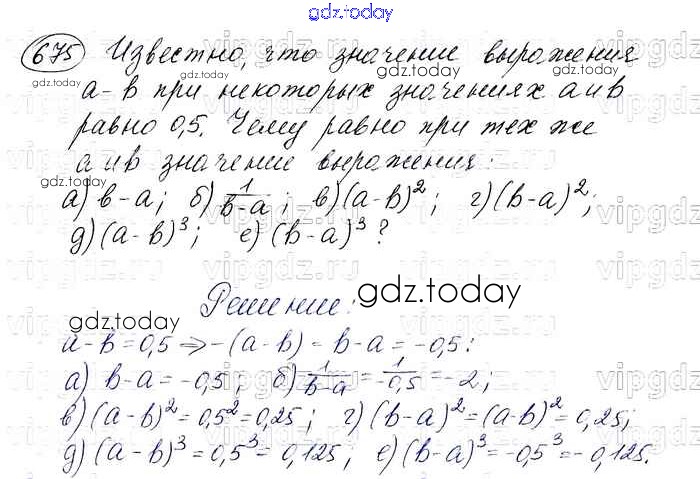 gdz.today
675 Известно, что значение выражения
а-в при некоторых значениях а и в
равно 0,5. Чему равно при тех же
а и в значение выражения:
а) в-а; б) 1/(в-а); в) (а-в)²; г) (в-а)²;
д) (а-в)³; е) (в-а)³?
Решение:
а-в=0,5 ⇒ -(а-в) = в-а = -0,5:
а) в-а = -0,5; б) 1/(в-а) = 1/-0,5 = -2;
в) (а-в)² = 0,5² = 0,25; г) (в-а)² = (а-в)² = 0,25;
д) (а-в)³ = 0,5³ = 0,125; е) (в-а)³ = -0,5³ = -0,125.
gdz.today
gdz.today
gdz.today
gdz.today
gdz.today
gdz.today
gdz.today
gdz.today